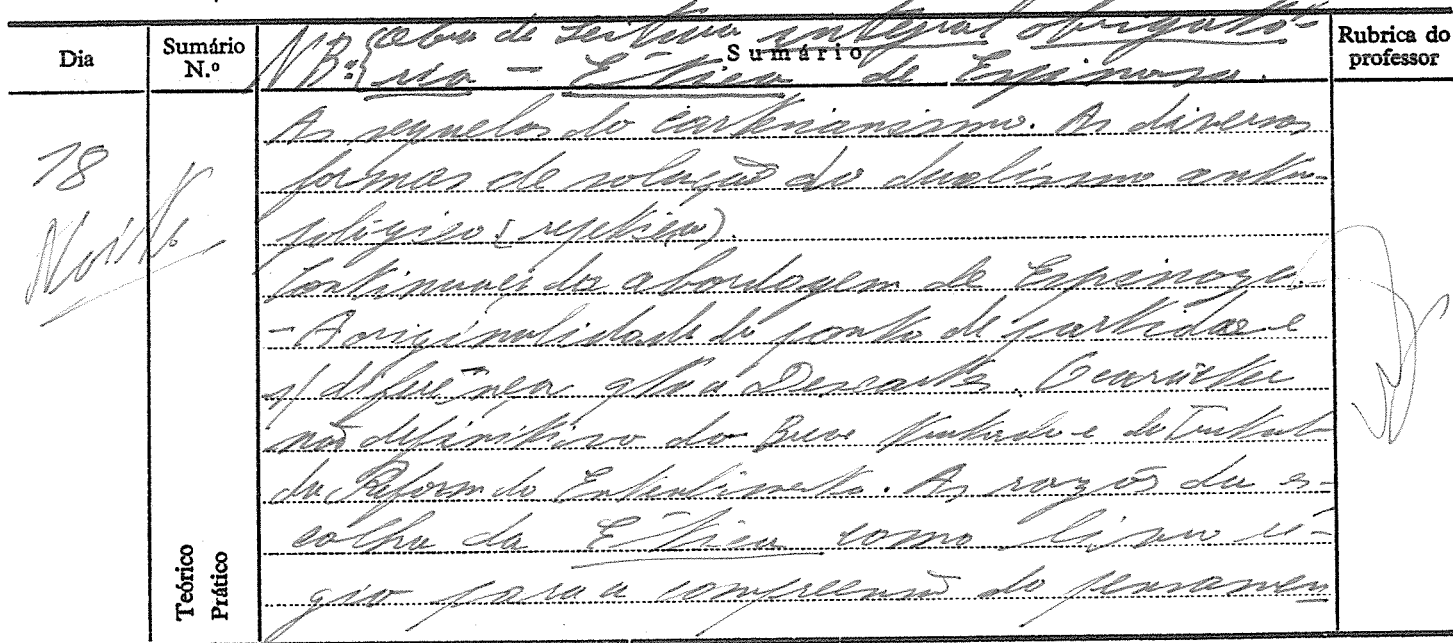 Dia
Sumário N.º
Sumário
Rubrica do professor
NB: Obra de leitura integral obrigató-
ria - Ética de Espinosa.
18
Noite
As sequelas do cartesianismo. As diversas
formas de solução do dualismo antro-
pológico (repetição).
Continuação da abordagem de Espinoza.
- A originalidade do ponto de partida e
s/ diferença qto a Descartes. O carácter
não definitivo do Breve Tratado e do Tratado
da Reforma do Entendimento. As razões da es-
colha da Ética como livro ré-
gio para a compreensão do pensamen
Teórico
Prático